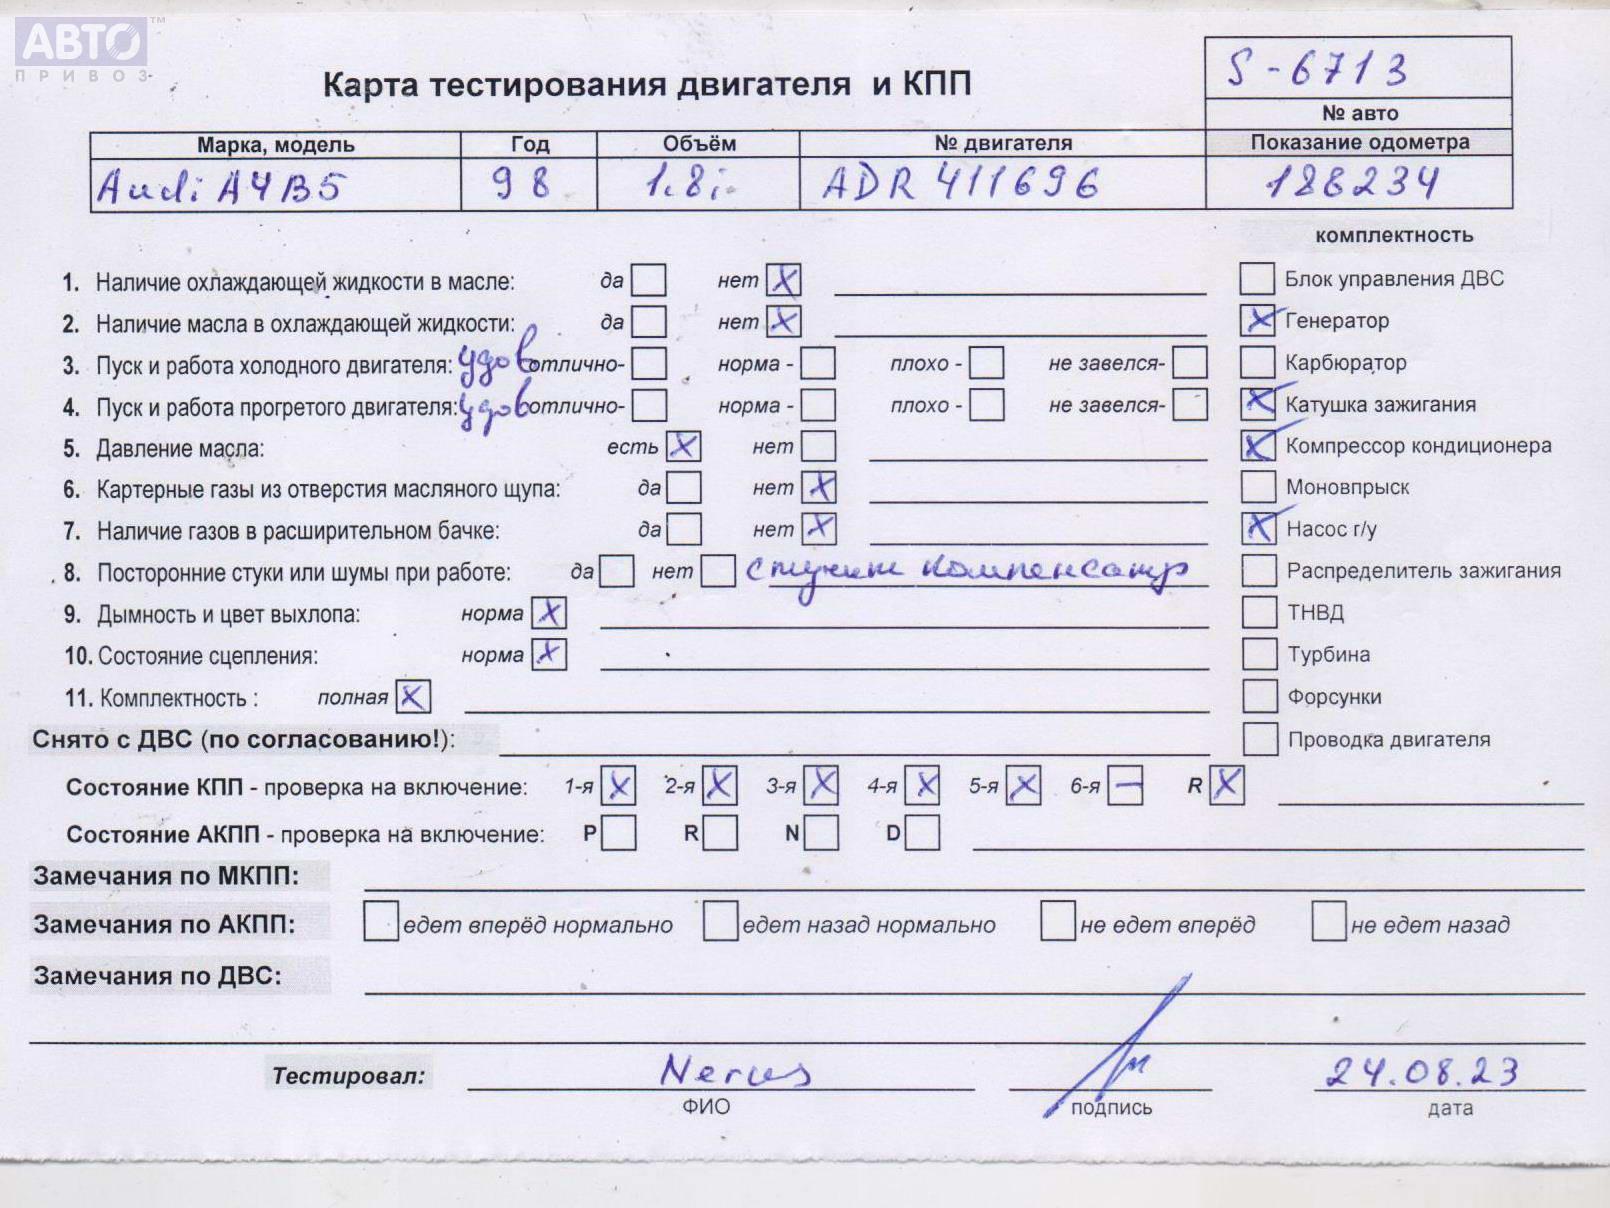 АВТО™
ПРИВОЗ
S-6713
Карта тестирования двигателя и КПП
№ авто
Марка, модель Год Объём № двигателя Показание одометра
Audi A4B5 98 1.8i ADR 411696 188234
комплектность
1. Наличие охлаждающей жидкости в масле: да нет X Блок управления ДВС
2. Наличие масла в охлаждающей жидкости: да нет X X Генератор
3. Пуск и работа холодного двигателя: удов отлично- норма - плохо - не завелся- Карбюратор
4. Пуск и работа прогретого двигателя: удов отлично- норма - плохо - не завелся- X Катушка зажигания
5. Давление масла: есть X нет X Компрессор кондиционера
6. Картерные газы из отверстия масляного щупа: да нет X Моновпрыск
7. Наличие газов в расширительном бачке: да нет X X Насос г/у
8. Посторонние стуки или шумы при работе: да нет стучит компенсатр Распределитель зажигания
9. Дымность и цвет выхлопа: норма X ТНВД
10. Состояние сцепления: норма X Турбина
11. Комплектность : полная X Форсунки
Снято с ДВС (по согласованию!): Проводка двигателя
Состояние КПП - проверка на включение: 1-я X 2-я X 3-я X 4-я X 5-я X 6-я — R X
Состояние АКПП - проверка на включение: P R N D
Замечания по МКПП:
Замечания по АКПП: едет вперёд нормально едет назад нормально не едет вперёд не едет назад
Замечания по ДВС:
Тестировал: 24.08.23
ФИО подпись дата